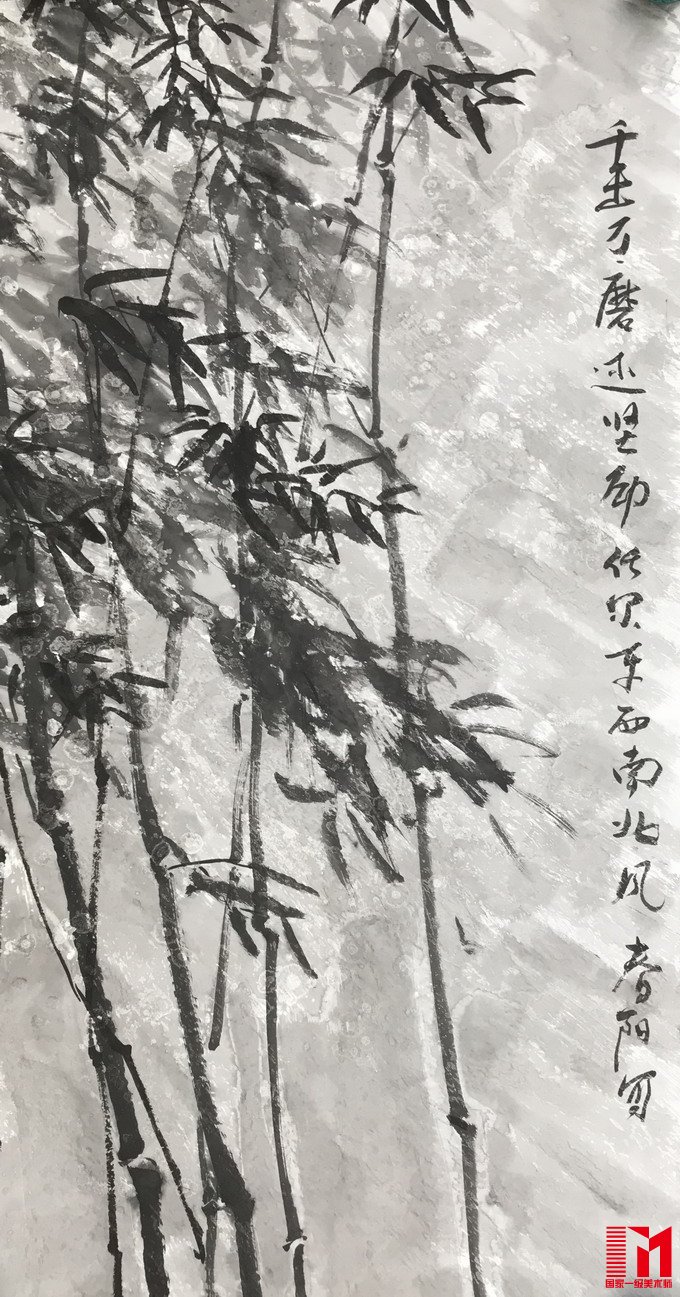 千击万磨还坚劲任尔东西南北风 春阳写
国家一级美术师